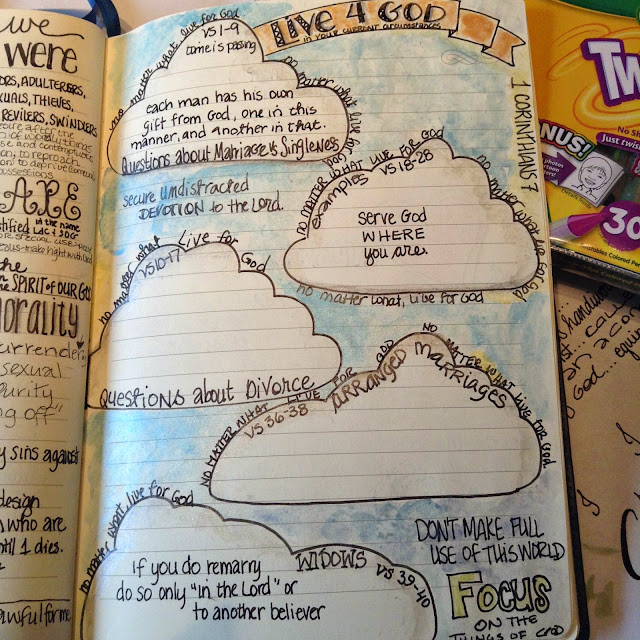 we
were
ORS, ADULTERERS,
UALS, THIEVES,
REVILERS, SWINDLERS
ARE
in the name
SPIRIT OF OUR GOD
orality
surrender
sexual
purity
ng off"
y sins against
design
who are
until 1 dies.
awful for me
LIVE 4 GOD
in your current circumstances
1 CORINTHIANS 7
no matter what live for God
VS 1-9
time is passing
no matter what live for God
each man has his own
gift from God, one in this
manner, and another in that.
Questions about Marriage vs Singleness
secure undistracted
DEVOTION to the Lord.
NO MATTER WHAT LIVE FOR GOD
examples VS 18-28
no matter what live for God
serve God
WHERE
you are.
no matter what, live for God
no matter what live for God
VS 10-17
Questions about Divorce
NO MATTER WHAT LIVE FOR GOD
VS 36-38
ARRANGED MARRIAGES
NO MATTER WHAT LIVE FOR GOD
no matter what live for God
if you do remarry
do so only "in the Lord" or
to another believer
WIDOWS VS 39-40
DON'T MAKE FULL
USE OF THIS WORLD
FOCUS
ON THE
THINGS OF GOD
TW
No Sh
Just twis
NUS!
photos
30
Colored Pe